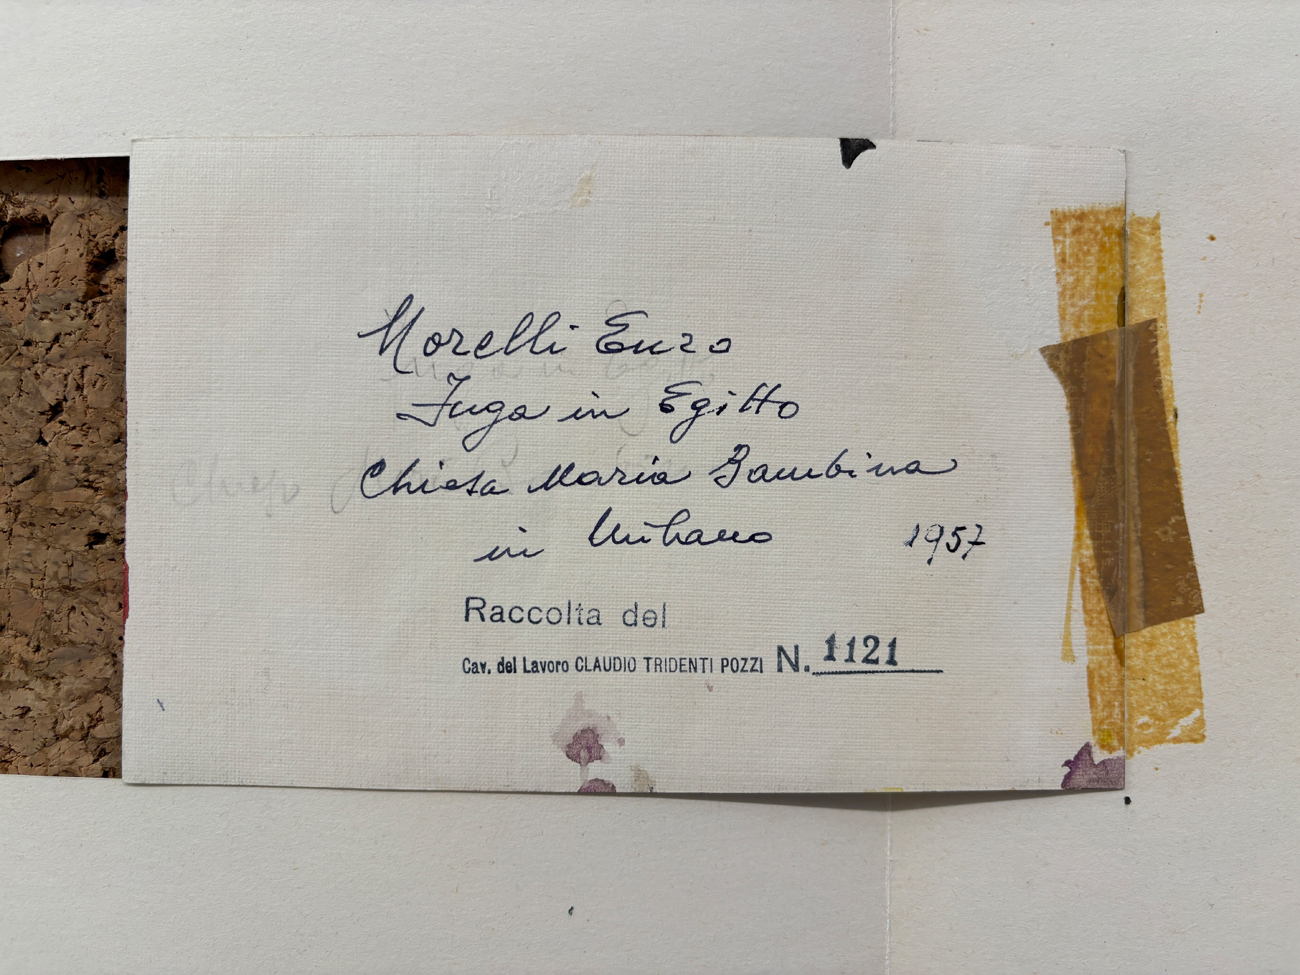 Morelli Enzo
Fuga in Egitto
Chiesa Maria Bambina
in Milano 1957
Raccolta del
Cav. del Lavoro CLAUDIO TRIDENTI POZZI N. 1121